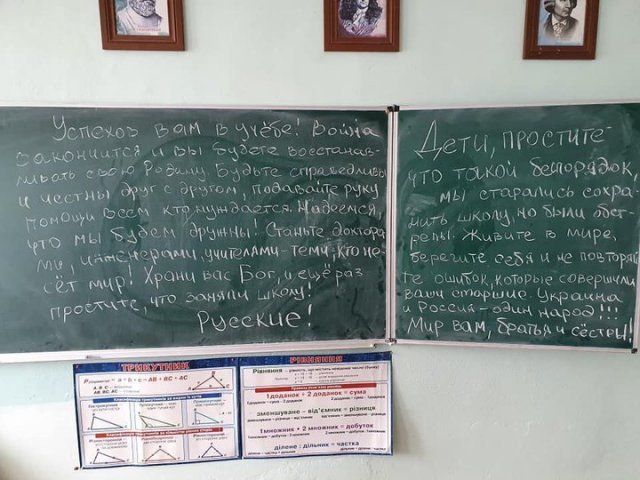 Успехов вам в учёбе! Война
закончится и вы будете восстанав-
ливать свою Родину. Будьте справедливы
и честны друг с другом, подавайте руку
помощи всем кто нуждается. Надеемся,
что мы будем дружны! Станьте доктора-
ми, инженерами, учителями - теми, кто не-
сёт мир! Храни вас Бог, и ещё раз
простите, что заняли школу!
Русские!
Дети, простите
что такой беспорядок,
мы старались сохра-
нить школу, но были обст-
релы. Живите в мире,
берегите себя и не повторяй
те ошибок, которые совершили
ваши старшие. Украина
и Россия - один народ!!!
Мир вам, братья и сёстры!
ТРИКУТНИК
P = a + b + c = AB + BC + AC
РІВНЯННЯ
1 доданок + 2 доданок = сума
зменшуване - від'ємник = різниця
1 множник • 2 множник = добуток
ділене : дільник = частка